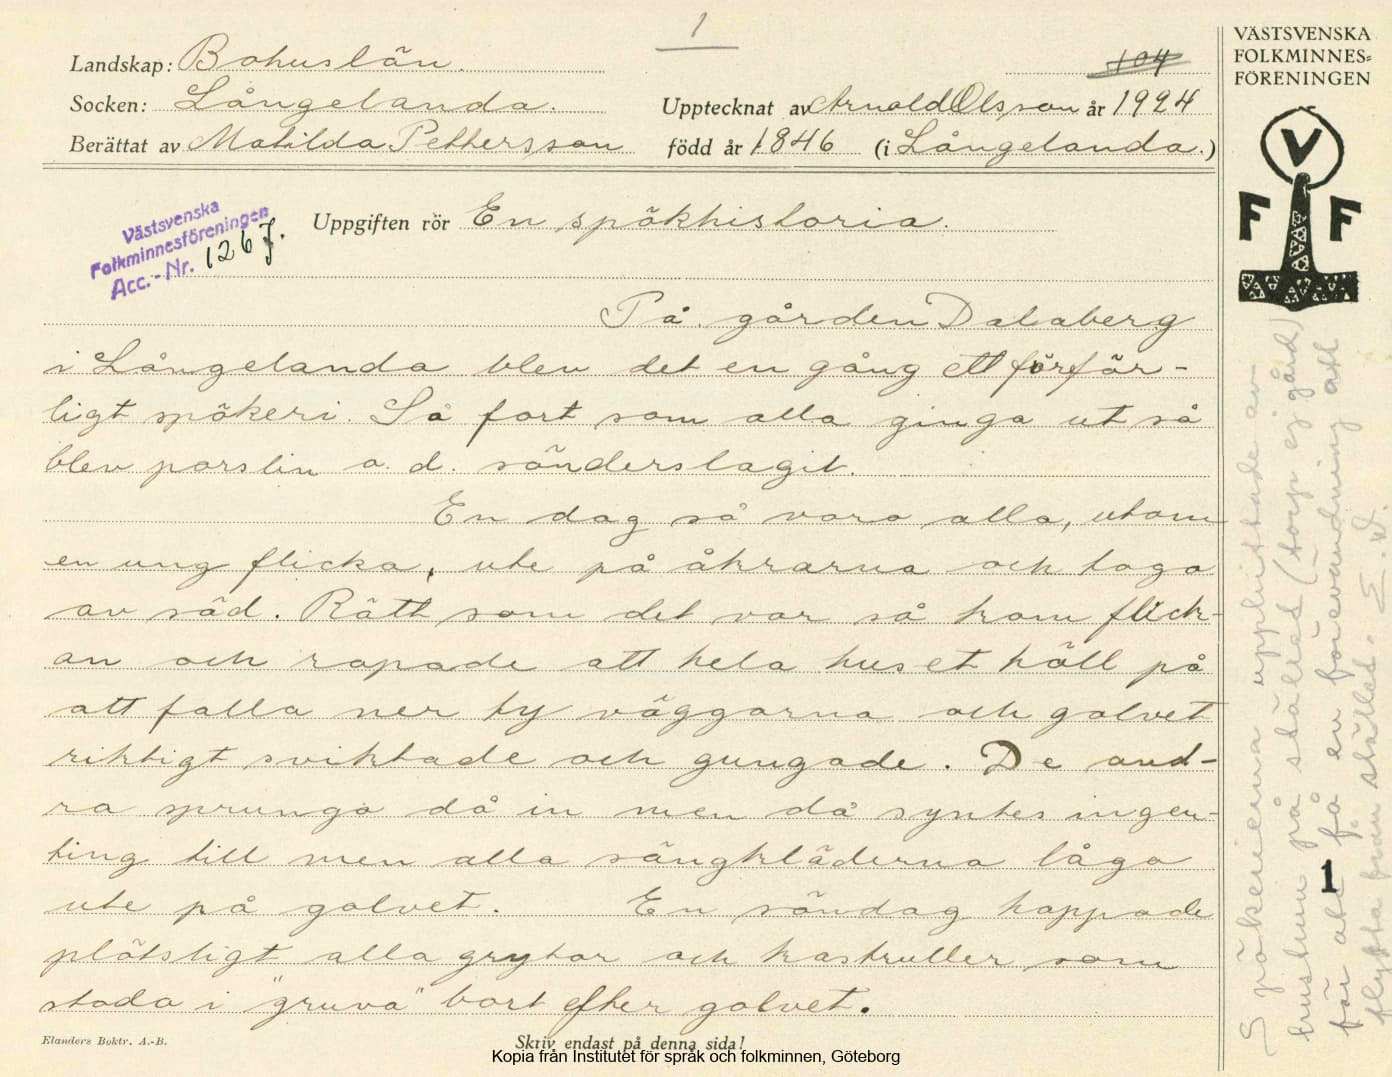 1
Landskap: Bohuslän.
104
Socken: Långelanda.
Upptecknat av Arnold Olsson år 1924
Berättat av Matilda Pettersson
född år 1846 (i Långelanda.)
VÄSTSVENSKA
FOLKMINNES=
FÖRENINGEN
V
F F
Västsvenska
Folkminnesföreningen
Acc.-Nr. 1267.
Uppgiften rör En spökhistoria.
På gården Dalaberg
i Långelanda blev det en gång ett förfär-
ligt spökeri. Så fort som alla ginga ut så
blev porslin o. d. sönderslagit.
En dag så voro alla, utom
en ung flicka, ute på åkrarna och togo
av säd. Rätt som det var så kom flick-
an och ropade att hela huset höll på
att falla ner ty väggarna och golvet
riktigt sviktade och gungade. De and-
ra sprungo då in men då syntes ingen-
ting till men alla sängkläderna lågo
ute på golvet. En söndag hoppade
plötsligt alla grytor och kastruller som
stodo i "gruva" bort efter golvet.
Spökerierna uppdiktade av
hustrun på stället (torp ej gård)
för att få en förevändning att
flytta från stället. E. d.
1
Elanders Boktr. A.-B.
Skriv endast på denna sida!
Kopia från Institutet för språk och folkminnen, Göteborg